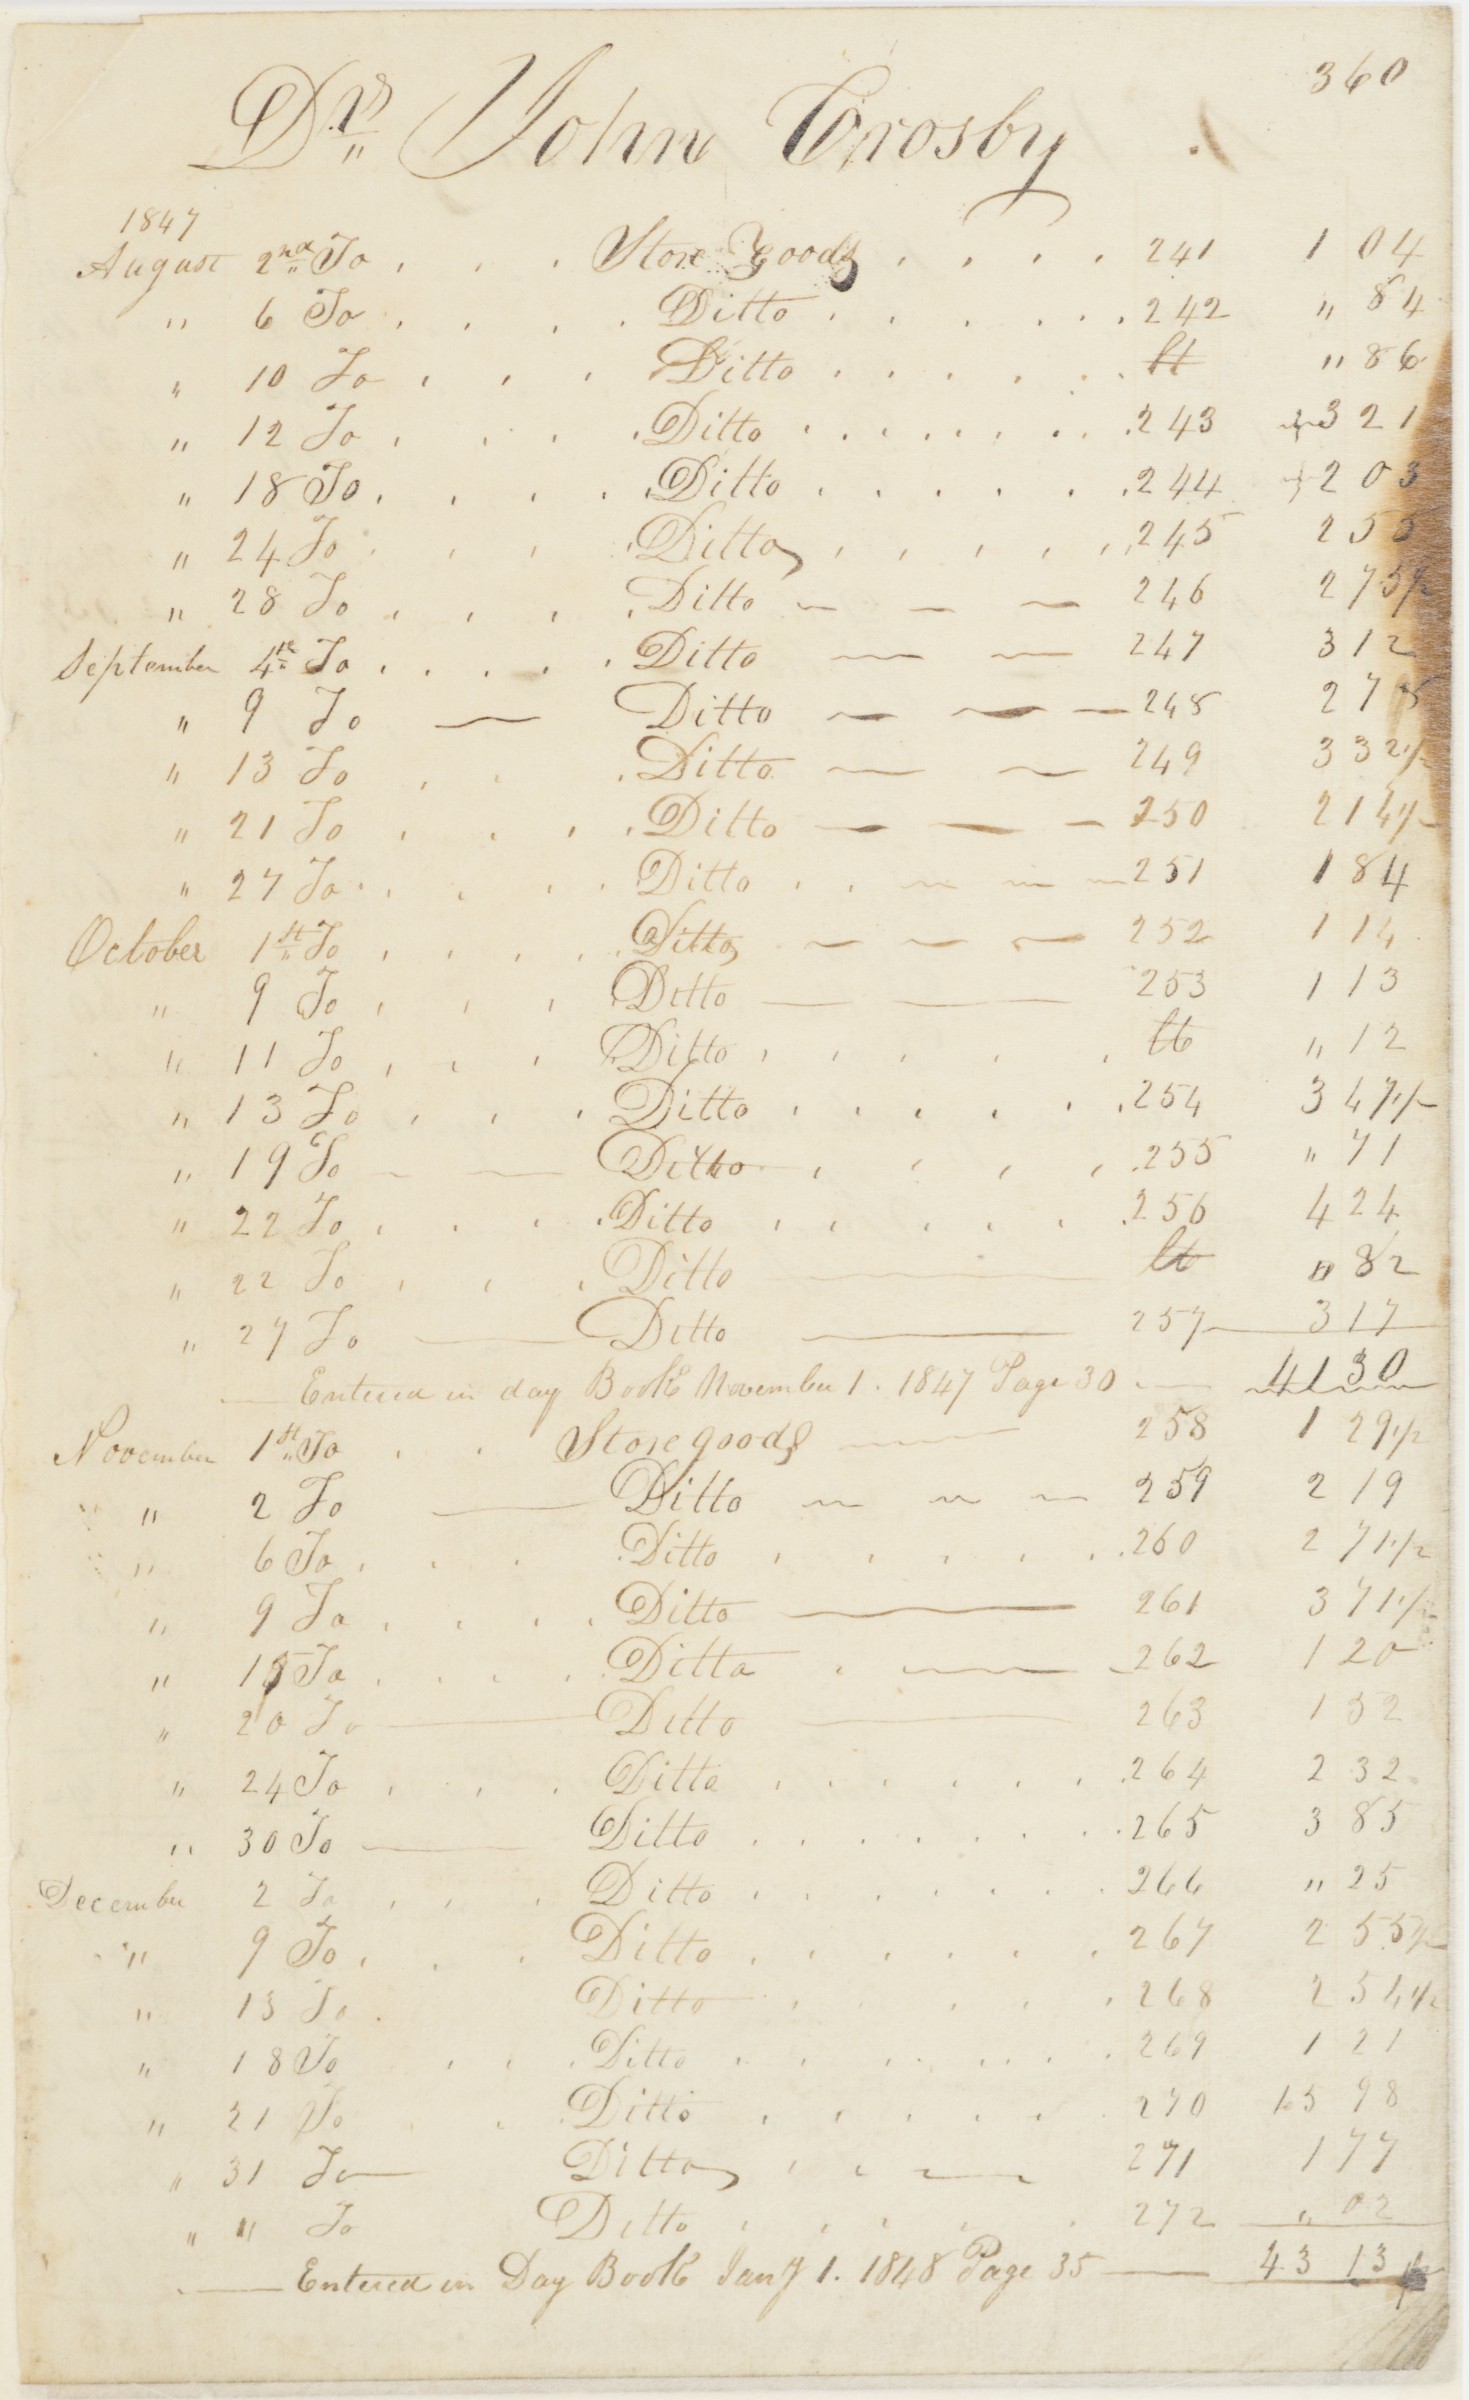 360
Drs John Crosby
1847
August 2nd To Store Goods 241 1 04
" 6 To Ditto 242 " 84
" 10 To Ditto " 86
" 12 To Ditto 243 3 21
" 18 To Ditto 244 2 03
" 24 To Ditto 245 2 55
" 28 To Ditto 246 2 75 1/2
September 4th To Ditto 247 3 12
" 9 To Ditto 248 2 78
" 13 To Ditto 249 3 32 1/2
" 21 To Ditto 250 2 14 1/2
" 27 To Ditto 251 1 84
October 1st To Ditto 252 1 14
" 9 To Ditto 253 1 13
" 11 To Ditto " 12
" 13 To Ditto 254 3 47 1/2
" 19 To Ditto 255 " 71
" 22 To Ditto 256 4 24
" 22 To Ditto " 82
" 27 To Ditto 257 3 17
Entered in day Book November 1. 1847 Page 30 41 30
November 1st To Store goods 258 1 29 1/2
" 2 To Ditto 259 2 19
" 6 To Ditto 260 2 71 1/2
" 9 To Ditto 261 3 71 1/2
" 15 To Ditto 262 1 20
" 20 To Ditto 263 1 52
" 24 To Ditto 264 2 32
" 30 To Ditto 265 3 85
December 2 To Ditto 266 " 25
" 9 To Ditto 267 2 55 1/2
" 13 To Ditto 268 2 54 1/2
" 18 To Ditto 269 1 21
" 21 To Ditto 270 15 98
" 31 To Ditto 271 1 77
" " To Ditto 272 " 02
Entered in Day Book Jany 1. 1848 Page 35 43 13